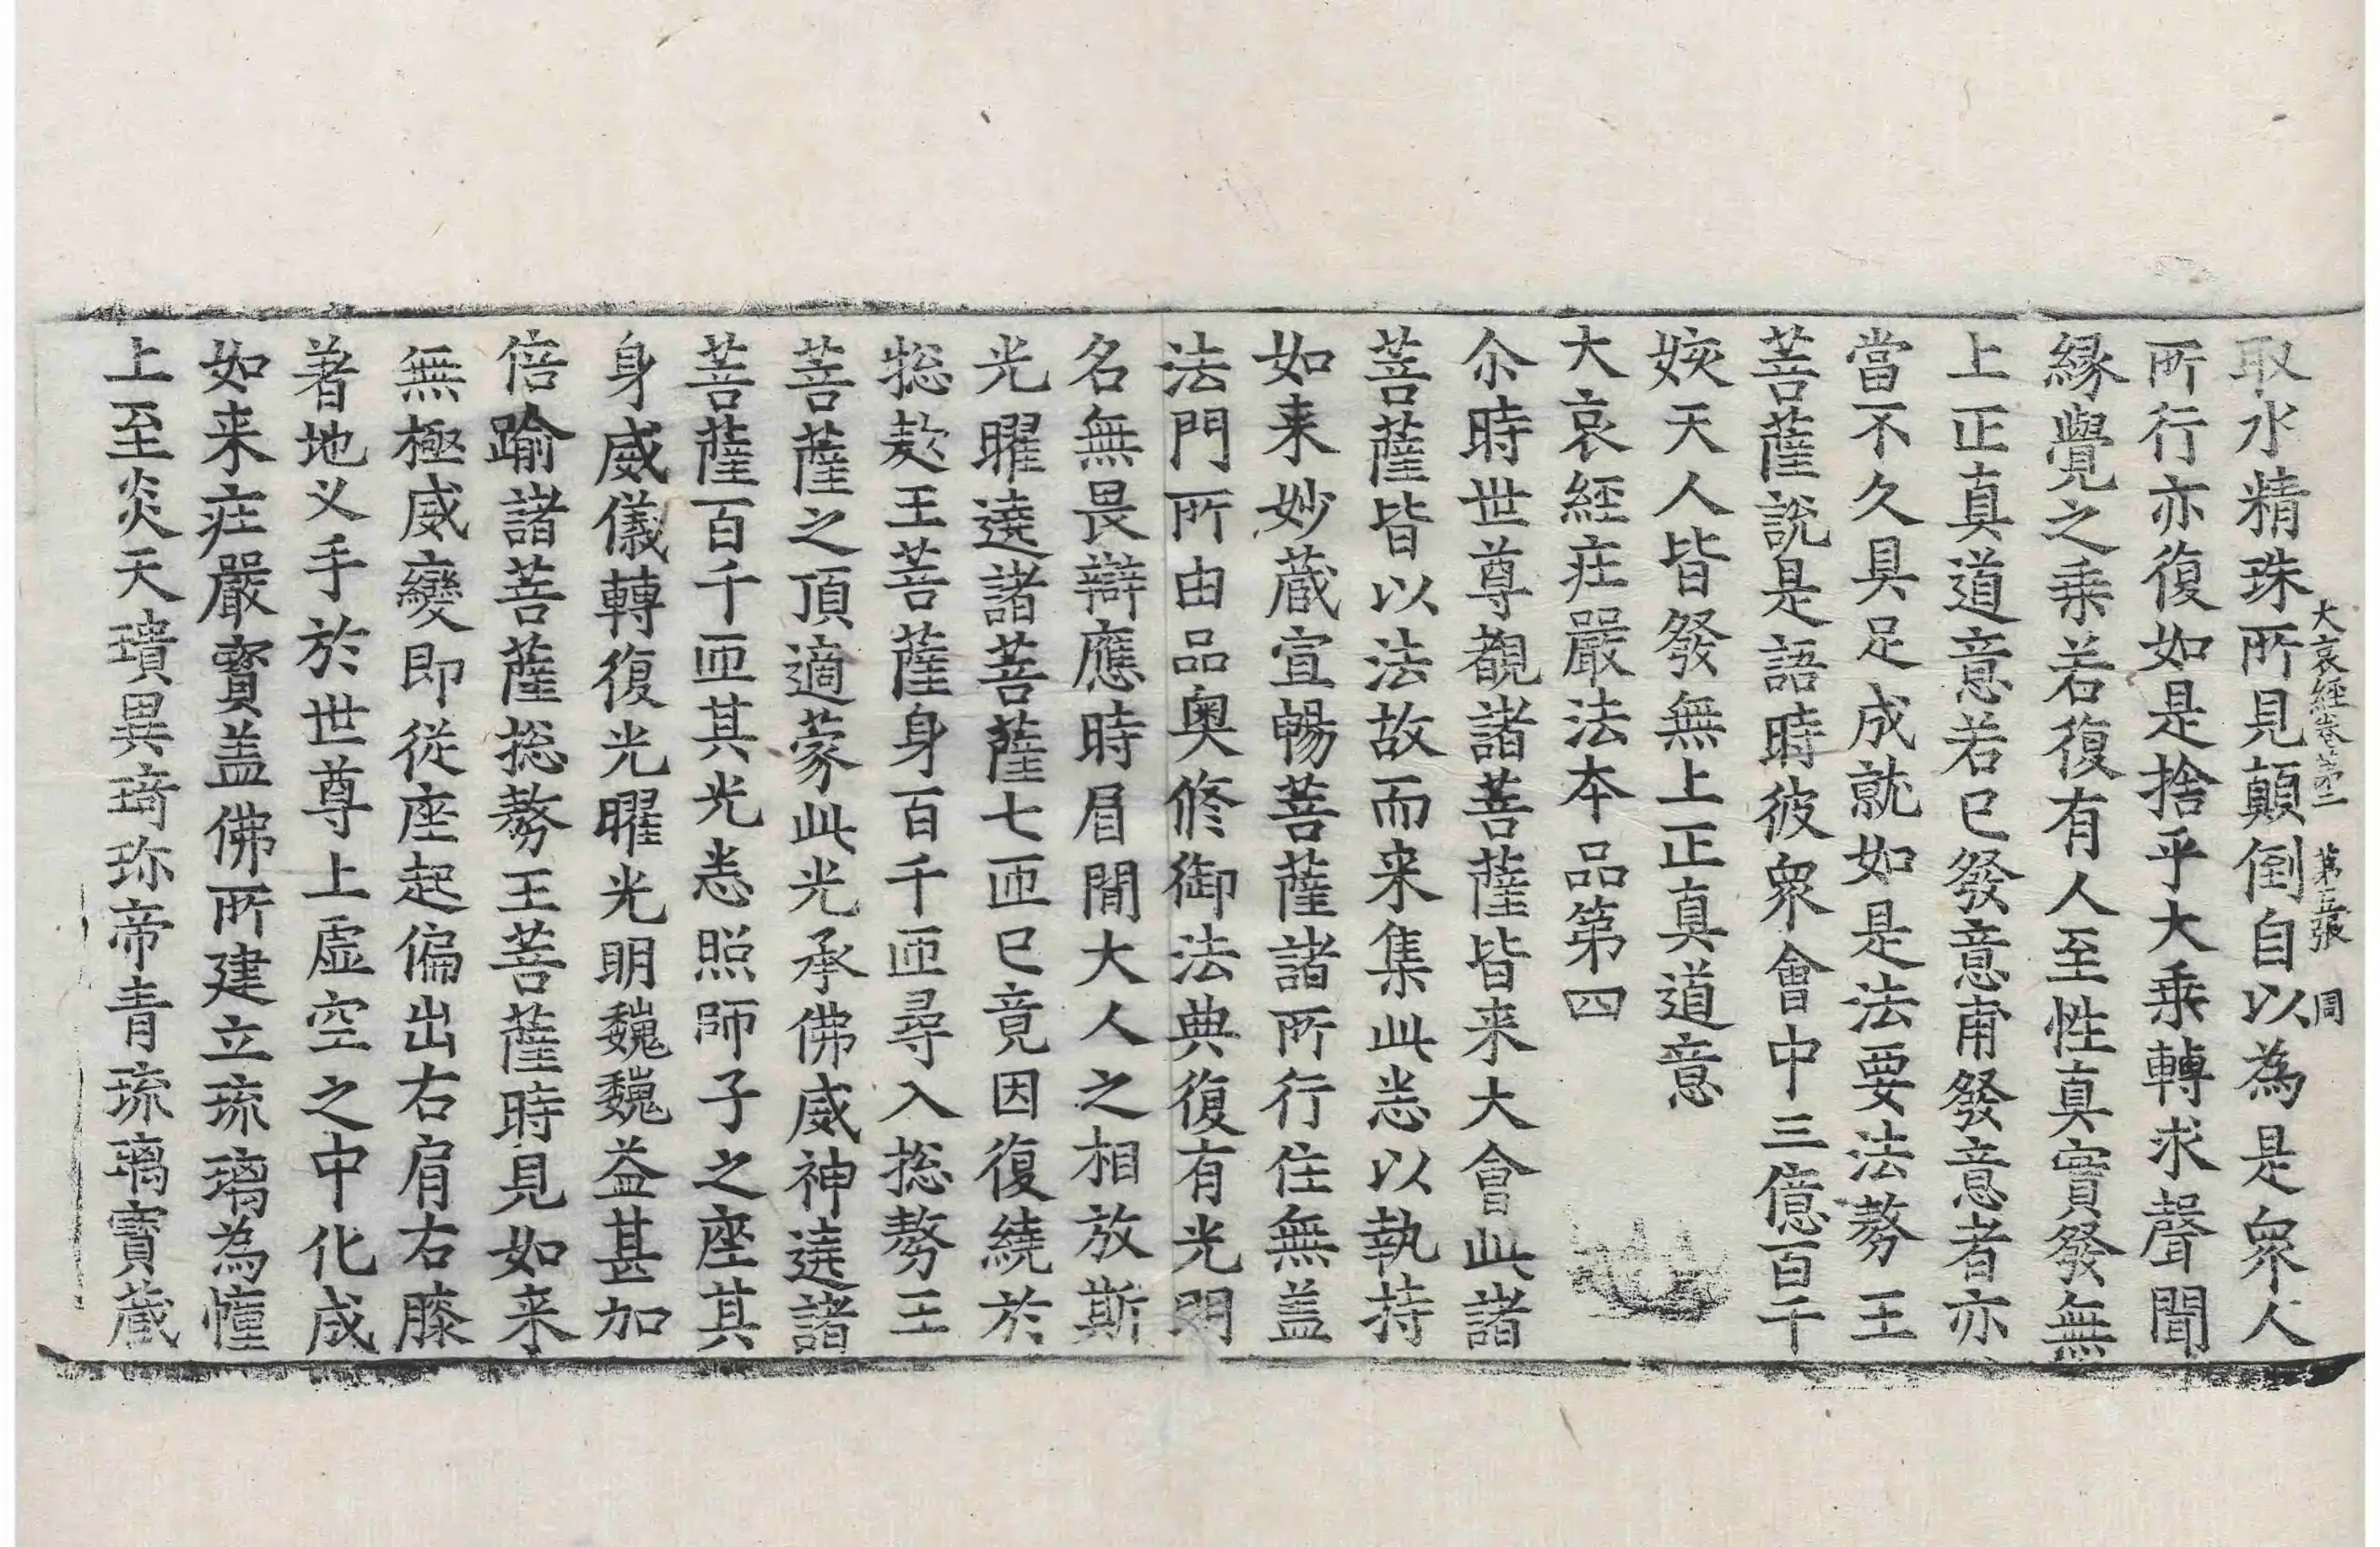 大哀經卷第二　第五張　周
取水精珠所見顛倒自以為是衆人
所行亦復如是捨乎大乗轉求聲聞
縁覺之乗若復有人至性真實發無
上正真道意若已發意甫發意者亦
當不久具足成就如是法要法勝王
菩薩說是語時彼衆會中三億百千
姟天人皆發無上正真道意
大哀經庄嚴法本品第四
尒時世尊觀諸菩薩皆来大會此諸
菩薩皆以法故而来集此悉以執持
如来妙蔵宣暢菩薩諸所行住無盖
法門所由品奥修御法典復有光明
名無畏辯應時眉間大人之相放斯
光曜遶諸菩薩七匝已竟因復繞於
揔勑王菩薩身百千匝尋入揔勑王
菩薩之頂適蒙此光承佛威神遶諸
菩薩百千匝其光悉照師子之座其
身威儀轉復光曜光明巍巍益甚加
倍踰諸菩薩揔勑王菩薩時見如来
無極威變即従座起偏出右肩右膝
著地义手於世尊上虛空之中化成
如来庄嚴寳盖佛所建立琉璃為幢
上至炎天璝異琦珎帝青琉璃寳蔵